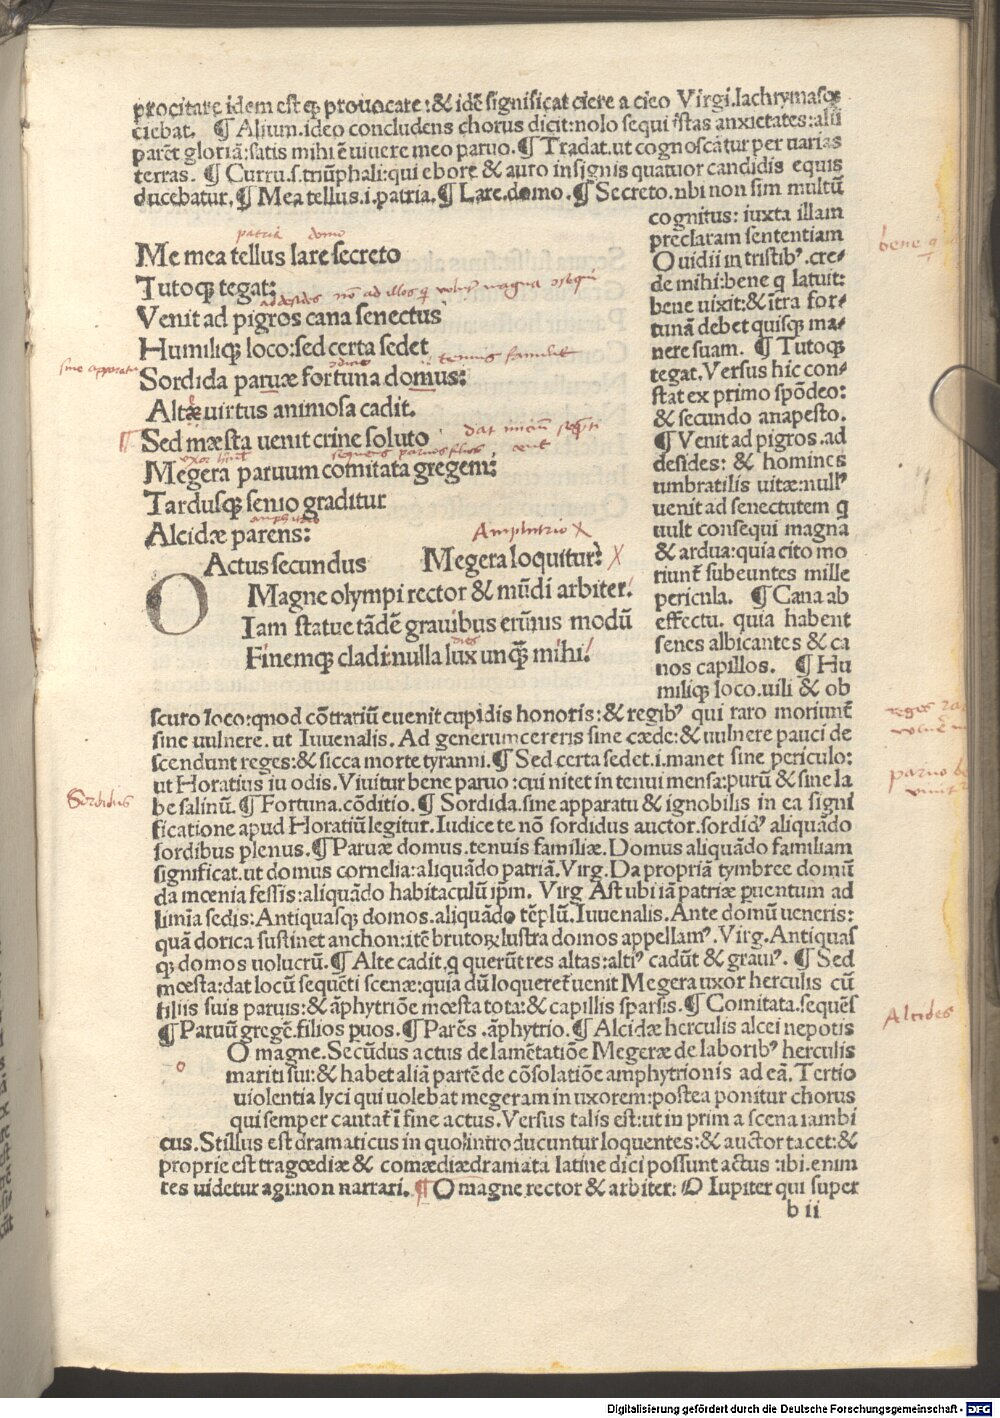 procitare idem est qꝫ prouocare: & idē significat ciere a cieo Virgi. lachrymasqꝫ
ciebat. ¶ Alium. ideo concludens chorus dicit: nolo sequi istas anxietates: alii
parēt gloriā: satis mihi ē uiuere meo paruo. ¶ Tradat. ut cognoscātur per uarias
terras. ¶ Curru. s. triūphali: qui ebore & auro insignis quatuor candidis equis
ducebatur. ¶ Mea tellus. i. patria. ¶ Lare. domo. ¶ Secreto. nbi non sim multū
cognitus: iuxta illam
preclaram sententiam
Ouidii in tristibꝰ. cre-
de mihi: bene q latuit:
bene uixit: & ītra for-
tunā debet quisqꝫ ma-
nere suam. ¶ Tutoqꝫ
tegat. Versus hic con-
stat ex primo spōdeo:
& secundo anapesto.
¶ Venit ad pigros. ad
desides: & homines
umbratilis uitæ: nullꝰ
uenit ad senectutem q
uult consequi magna
& ardua: quia cito mo
riunt̄ subeuntes mille
pericula. ¶ Cana ab
effectu. quia habent
senes albicantes & ca
nos capillos. ¶ Hu
miliqꝫ loco. uili & ob
patria domo
Me mea tellus lare secreto
Tutoqꝫ tegat:
ad desides nō ad illos q magna
Venit ad pigros cana senectus
Humiliqꝫ loco: sed certa sedet
sine apparatu
tenuis familie
Sordida paruæ fortuna domus:
Altæ uirtus animosa cadit.
Sed mæsta uenit crine soluto
Megera paruum comitata gregem:
Tardusqꝫ senio graditur
Alcidæ parens:
Amphitrio X
Actus secundus Megera loquitur: X
O Magne olympi rector & mūdi arbiter:
Iam statue tādē grauibus erūnis modū
dies
Finemqꝫ cladi: nulla lux unqꝫ̄ mihi.
scuro loco: quod cōtrariū euenit cupidis honoris: & regibꝰ qui raro moriunt̄
sine uulnere. ut Iuuenalis. Ad generum cereris sine cæde: & uulnere pauci de
scendunt reges: & sicca morte tyranni. ¶ Sed certa sedet. i. manet sine periculo:
ut Horatius iu odis. Viuitur bene paruo: cui nitet in tenui mensa: purū & sine la
be salinū. ¶ Fortuna. cōditio. ¶ Sordida. sine apparatu & ignobilis in ea signi
Sordidus
ficatione apud Horatiū legitur. Iudice te nō sordidus auctor. sordidꝰ aliquādo
sordibus plenus. ¶ Paruæ domus. tenuis familiæ. Domus aliquādo familiam
significat. ut domus cornelia: aliquādo patriā. Virg. Da propriā tymbree domū
da mœnia fessis: aliquādo habitaculū ip̄m. Virg Ast ubi iā patriæ puentum ad
limīa sedis: Antiquasqꝫ domos. aliquādo tēplū. Iuuenalis. Ante domū ueneris:
quā dorica sustinet anchon: itē brutoꝝ lustra domos appellamꝰ. Virg. Antiquas
qꝫ domos uolucrū. ¶ Alte cadit. q querūt res altas: altiꝰ cadūt & grauiꝰ. ¶ Sed
mœsta: dat locū sequēti scenæ: quia dū loqueret̄ uenit Megera uxor herculis cū
filiis suis paruis: & āphytriōe mœsta tota: & capillis sparsis. ¶ Comitata. sequēs
Alcides
¶ Paruū gregē. filios puos. ¶ Parēs. āphytrio. ¶ Alcidæ herculis alcei nepotis
O magne. Secūdus actus de lamētatiōe Megeræ de laboribꝰ herculis
o
mariti sui: & habet aliā partē de cōsolatiōe amphytrionis ad eā. Tertio
uiolentia lyci qui uolebat megeram in uxorem: postea ponitur chorus
qui semper cantat ī fine actus. Versus talis est: ut in prima scena iambi
cus. Stillus est dramaticus in quo introducuntur loquentes: & auctor tacet: &
proprie est tragœdiæ & comædiæ dramata latine dici possunt actus: ibi. enim
res uidetur agi: non narrari. ¶ O magne rector & arbiter: O Iupiter qui super
b ii
Digitalisierung gefördert durch die Deutsche Forschungsgemeinschaft - DFG